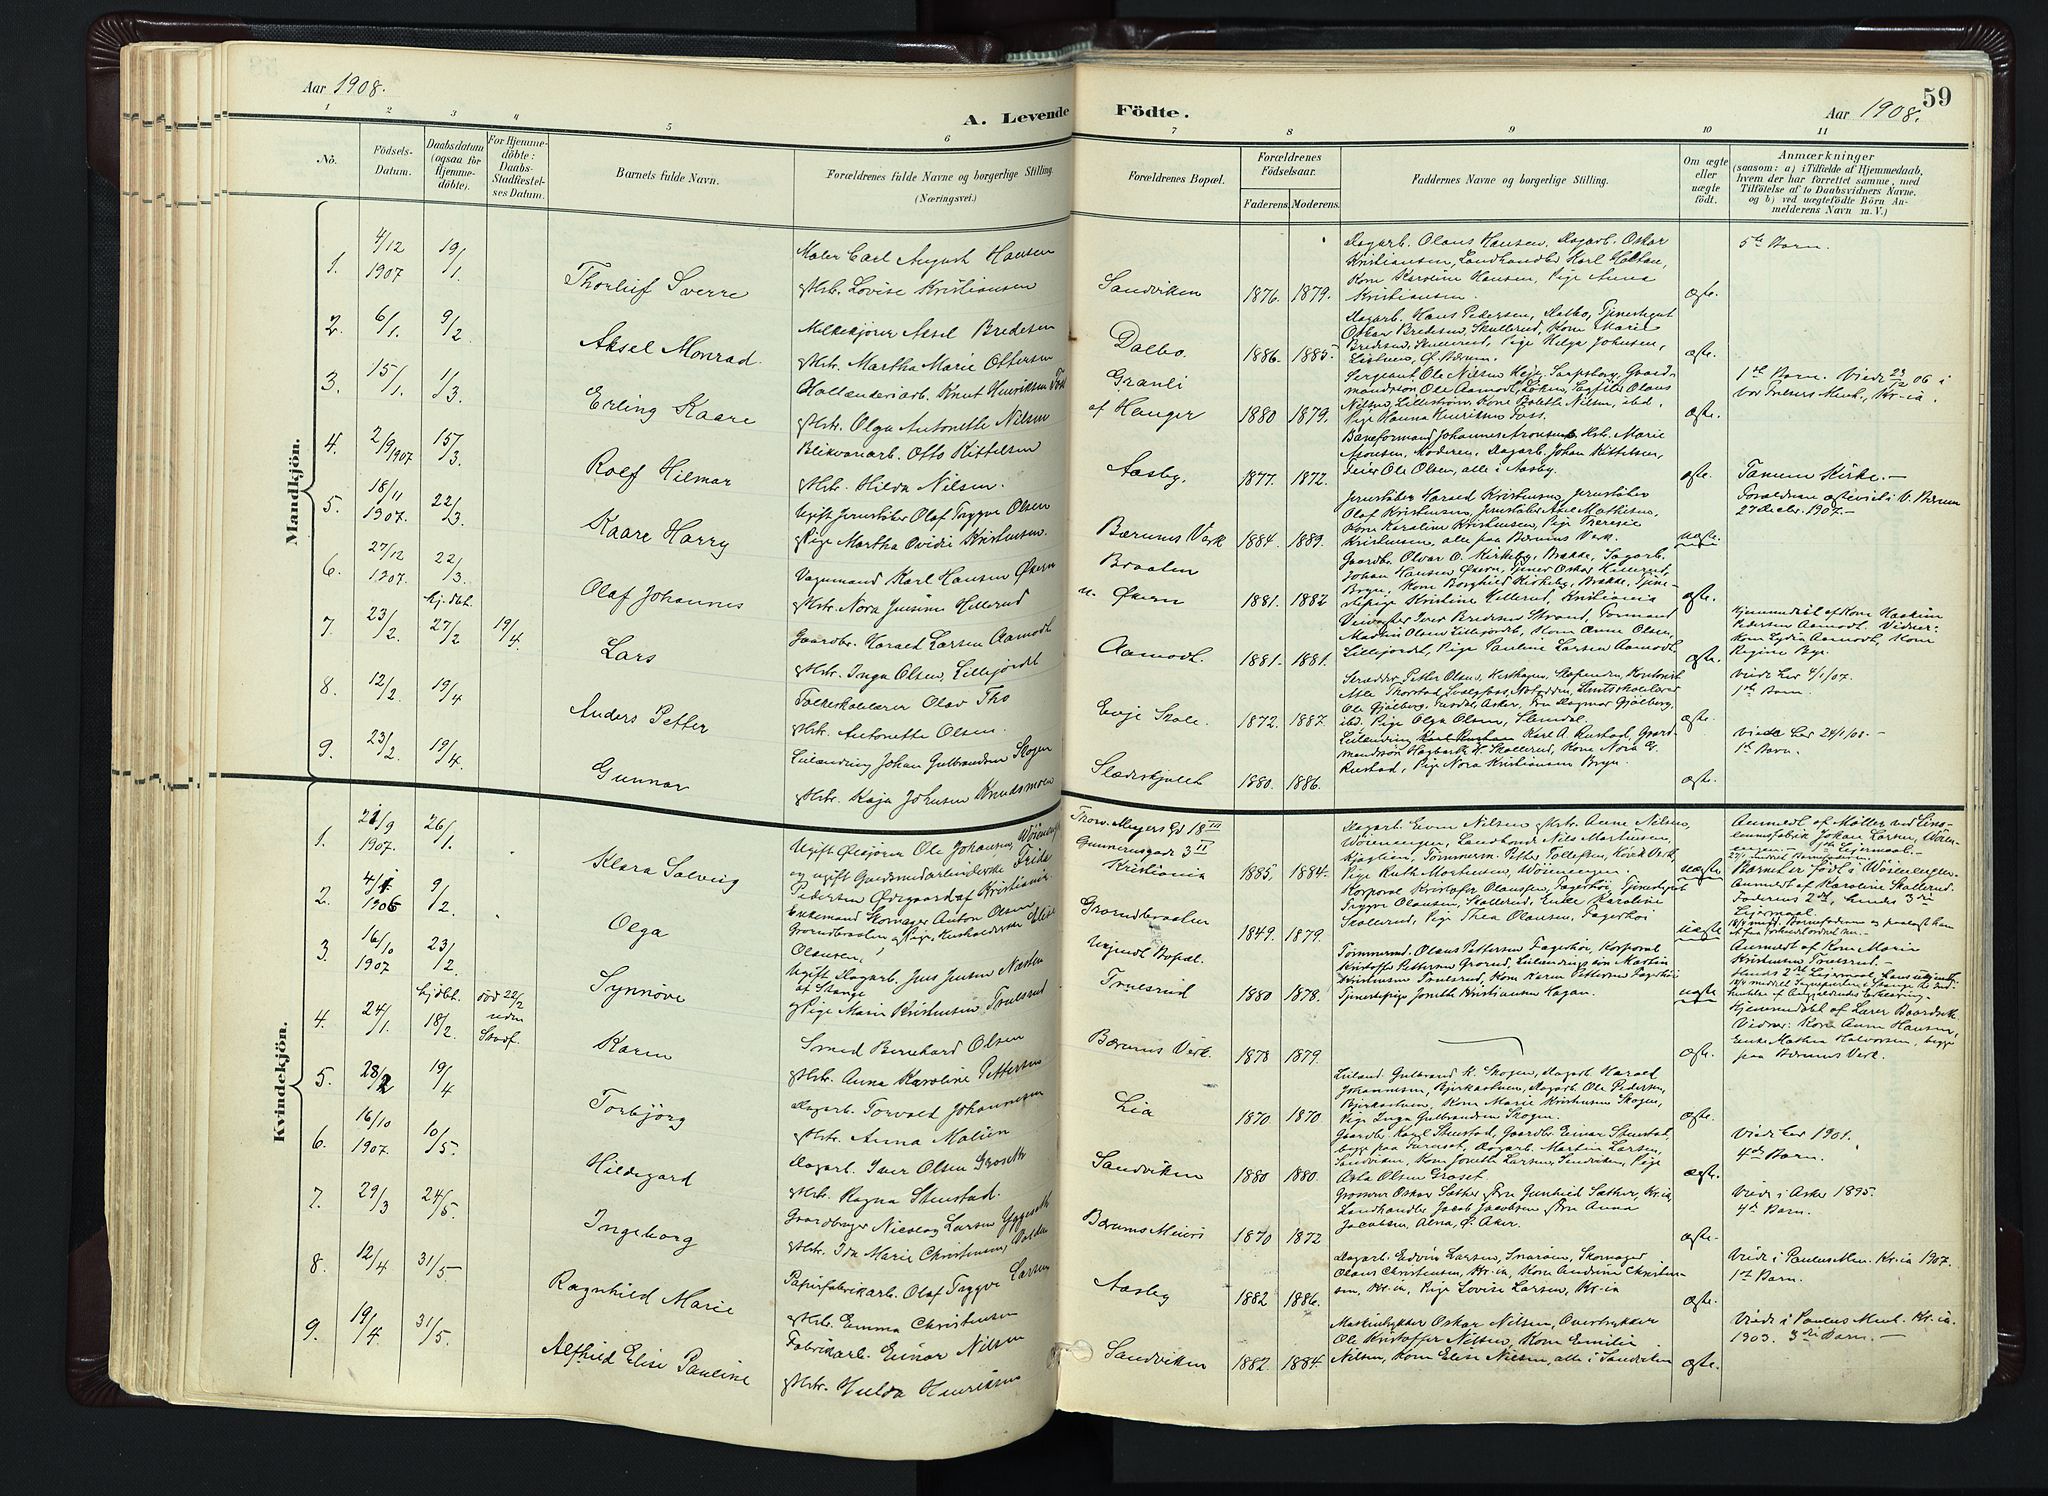 Aar 1908.
A. Levende
Födte.
59
Aar 1908.
1 2 3 4 5 6
7 8 9 10 11
No.
Födsels-
Datum.
Daabsdatum
(ogsaa for
Hjemme-
döbte).
For Hjemme-
döbte:
Daabs-
Stadfæstel-
ses Datum.
Barnets fulde Navn.
Forældrenes fulde Navne og borgerlige Stilling.
(Næringsvei.)
Forældrenes Bopæl.
Forældrenes
Födselsaar.
Faderens. Moderens.
Faddernes Navne og borgerlige Stilling.
Om ægte
eller
uægte
födt.
Anmærkninger
(saasom: a) i Tilfælde af Hjemmedaab,
hvem der har forrettet samme, med
Tilföielse af to Daabsvidners Navne.
og b) ved uægtefödte Börn An-
melderens Navn m. V.)
Mandkjön.
1. 4/12 1907 19/1. Thorleif Sverre
Maler Carl August Hansen
Hstr. Lovise Kristiansen
Sandviken 1876. 1879.
Dagarb. Olaus Hansen, Dagarb. Oskar
Kristiansen, Landhandler Karl
Kone Karoline Hansen, Pige Anna
Kristiansen.
ægte.
5te Barn.
2. 6/1. 9/2 Aksel Monrad.
Melkekjører Aksel Bredesen
Hstr. Martha Marie Ottersen
Dalbo. 1886. 1885.
Dagarb. Hans Pedersen, Dalbo, Tjenestegut
Oskar Bredesen, Skallerud, Kone Marie
Bredesen, Skallerud, Pige Helga Johnsen,
Ø. Bærum.
ægte.
3. 15/1. 1/3. Erling Kaare
Hollænderiarb. Knut Henriksen Foss
Hstr. Olga Antonette Nilsen
Granli
af Hauger 1880 1879.
Sergeant Ole Nilsen Sarpsborg, Gaard-
mandssøn Ole Aamodt, Løken, Olaus
Nilsen, Lillestrøm, Kone Bolette Nilsen, ibd.
Pige Hanna Henriksen Foss.
ægte.
1te Barn. Viede 23/12 06 i
vor Frelsers Menh., Kr-ia.
4. 2/9 1907 15/3. Rolf Hilmar
Blikvarearb. Otto Kittelsen
Hstr. Hilda Nilsen.
Aasby. 1877. 1872.
Baneformand Johannes Aronsen Hst. Marie
Aronsen, Moderen, Dagarb. Johan Kittelsen,
Feier Ole Olsen, alle i Aasby.
ægte.
Tanum Kirke.
5. 18/11 1907. 22/3. Kaare Harry
Ugift Jernstøber Olaf Tryggve Olsen
Pige Martha Ovidie Kristensen
Bærums Verk 1884. 1889.
Jernstøber Harald Kristensen, Jernstøber
Olaf Kristensen, Jernstøber Axel Mathisen,
Kone Karoline Kristensen, Pige Theresie
Kristensen, alle paa Bærums Verk.
uægte
Forældrene ægteviet i V. Bærum
27 Decbr. 1907.
6. 27/12 1907. 22/3. Olaf Johannes
Vognmand Karl Hansen Økern
Hstr. Nora Jusine Hillerud
Braaten
u. Økern 1881. 1882
Gaardbr. Olvar O. Kirkeby, Brække, Sagarb.
Johan Hansen Økern, Tjener Oskar Hillerud,
Bryn, Kone Borghild Kirkeby, Brække, Tjene-
stepige Kristine Hillerud, Kristiania
ægte.
7. 23/2. hj.dbt. 27/2 19/4. Lars
Gaardbr. Harald Larsen Aamodt
Hstr. Inga Olsen, Lillejordet
Aamodt. 1881. 1881.
Veivogter Iver Bredesen Strand, Formand
Martin Olsen Lillejordet, Kone Anne Olsen,
Lillejordet, Pige Pauline Larsen Aamodt
ægte.
Hjemmedøbt af Kone
Pedersen Aamodt. Vidner:
Kone Lydia Aamodt, Kone
Regine Bye.
8. 12/2. 19/4 Anders Petter
Folkeskolelærer Olav Tho
Hstr. Antonette Olsen.
Evje Skole. 1872. 1887.
Skrædder Petter Olsen, Slependen, Kontorist
Atle Thorstad, Notodden, Amtsskolelærer
Ole Gjølberg, Asker, Fru Dagmar Gjølberg,
ibd. Pige Olga Olsen, Slemdal.
ægte.
Viede her 4/1/07.
1te Barn.
9. 23/2. 19/4. Gunnar
Leilænding Johan Gulbrandsen Skogen
Hstr. Kaja Johnsen Knudsmoen
Slædeskjulet 1880. 1886.
Leilænding Karl A. Rustad, Gaard-
mandssøn Hagbart H. Skallerud, Kone Nora G.
Rustad, Pige Nora Kristiansen Bryn.
ægte.
Viede her 24/1/08.
1te Barn.
Kvindekjön.
1. 21/9 1907. 26/1. Klara Solveig
Ugift Ole Johansen, Wøienengen
og ugift Frida
Pedersen Ødegaard af Kristiania.
Thorv. Meyers Gd 18 III
Gunnerusgade 3 II
Kristiania 1885. 1884.
Dagarb. Even Nilsen Hstr. Anne Nilsen,
Wøienengen, Landhandl. Nils Martinsen
Kjaglien, Tømmerm. Petter Tollefsen, Verk,
Pige Ruth Martinsen, Wøienengen.
uægte
Anmeldt af Møller ved Lens-
Johan Larsen, Wøien-
engen.
Barnet er født i Wøienengen.
2. 4/1 1906 9/2. Olga
Enkemand Skomager Anton Olsen
Grorudbraaten Pige, Husholderske Elise
Olausen,
Grorudbraaten 1849. 1879.
Korporal Kristofer Olaussen, Fagerhøi, Tjenestegut
Trygve Olaussen, Skallerud, Enke Karoline
Skallerud, Pige Thea Olaussen, Fagerhøi
uægte
Anmeldt af Karoline Skallerud.
Faderens 2det, hendes 3die
Leiermaal.
3. 16/10 1907 23/2. Synnøve
Ugift Dagarb. Jens Jensen Næsten
af Stange
og Pige Marie Kristensen Trulsrud
Ukjendt Bopæl.
Trulsrud 1880 1878.
Tømmermd. Olaus Pettersen Fagerhøi, Korporal
Kristoffer Pettersen Grorud, Leilændingssøn Martin
Kristensen Trulsrud, Kone Karen Pettersen Fagerhøi
Tjenestepige Josette Kristiansen Hagan.
uægte
Anmeldt af Kone Marie
Kristensen Trulsrud.
Hendes 2det Leiermaal, hans ukjendt
4. 24/1. hjdbt. 18/2. død 22/2 uden Stadf. Karen
Smed Bernhard Olsen
Hstr. Anna Karoline Pettersen
Bærums Verk. 1878 1879.
ægte.
Hjemmedøbt af Lærer Baardsek.
Vidner: Kone Anne Hansen,
Enke Mathea Halvorsen, begge
paa Bærums Verk.
5. 28/2 19/4 Torbjörg
Dagarb. Torvald Johannesen
Hstr. Anna Malien
Lia 1870 1870
Leiland. Gulbrand K. Skogen, Dagarb. Harald
Johannesen, Bjerkaslven, Dagarb. Ole Pedersen,
Bjerkaslven, Kone Marie Kristensen Skogen,
Pige Inga Gulbrandsen Skogen.
ægte.
6. 16/10 1907. 10/5. Hildegard
Dagarb. Iver Olsen Groseth
Hstr. Ragna Stenstad.
Sandviken 1880 1880.
Gaardbr. Karl Stenstad, Gaardbr. Einar Stenstad,
begge paa Furuset, Dagarb. Martin Larsen,
Sandviken, Kone Josette Larsen, Sandviken, Pige
Asta Olsen Groset.
ægte.
Viede her 1901.
4de Barn.
7. 29/3 24/5. Ingeborg
Gaardbruger Nicolay Larsen Yggeseth
Hstr. Ida Marie Christensen,
Bærums Meieri 1870 1872
Grosserer Oskar Sæther Fru Gunhild Sæther, Kr-ia,
Landhandler Jacob Jacobsen Fru Anna
Jacobsen, Alna, Ø. Aker.
ægte.
Viede i Asker 1895.
4de Barn.
8. 12/4 31/5 Ragnhild Marie
Papirfabrikarb. Olaf Tryggve Larsen
Hstr. Emma Christensen
Aasby 1882 1886.
Dagarb. Edvin Larsen, Snarøen, Skomager
Olaus Christensen, Kr-ia, Kone Andrine Christen-
sen, Kr-ia, Pige Lovise Larsen, Kr-ia
ægte.
Viede i Paulus Men. Kr-ia 1907.
1te Barn.
9. 19/4 31/5. Alfhild Elise Pauline
Fabrikarb. Einar Nilsen
Hstr. Hulda Henriksen
Sandviken 1882. 1884.
Maskintrykker Oskar Nilsen, Overtrykker
Ole Kristoffer Nilsen, Kone Emilie
Nilsen, Kone Elise Nilsen, alle i Sandviken
ægte.
Viede i Paulus Menh. Kr-ia.
1903. 3die Barn.